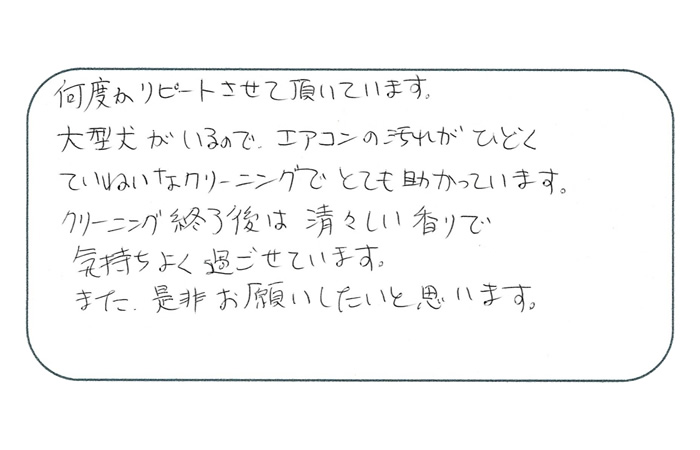 何度かリピートさせて頂いています。
大型犬がいるので、エアコンの汚れがひどく
ていねいなクリーニングでとても助かっています。
クリーニング終了後は清々しい香りで
気持ちよく過ごせています。
また、是非お願いしたいと思います。